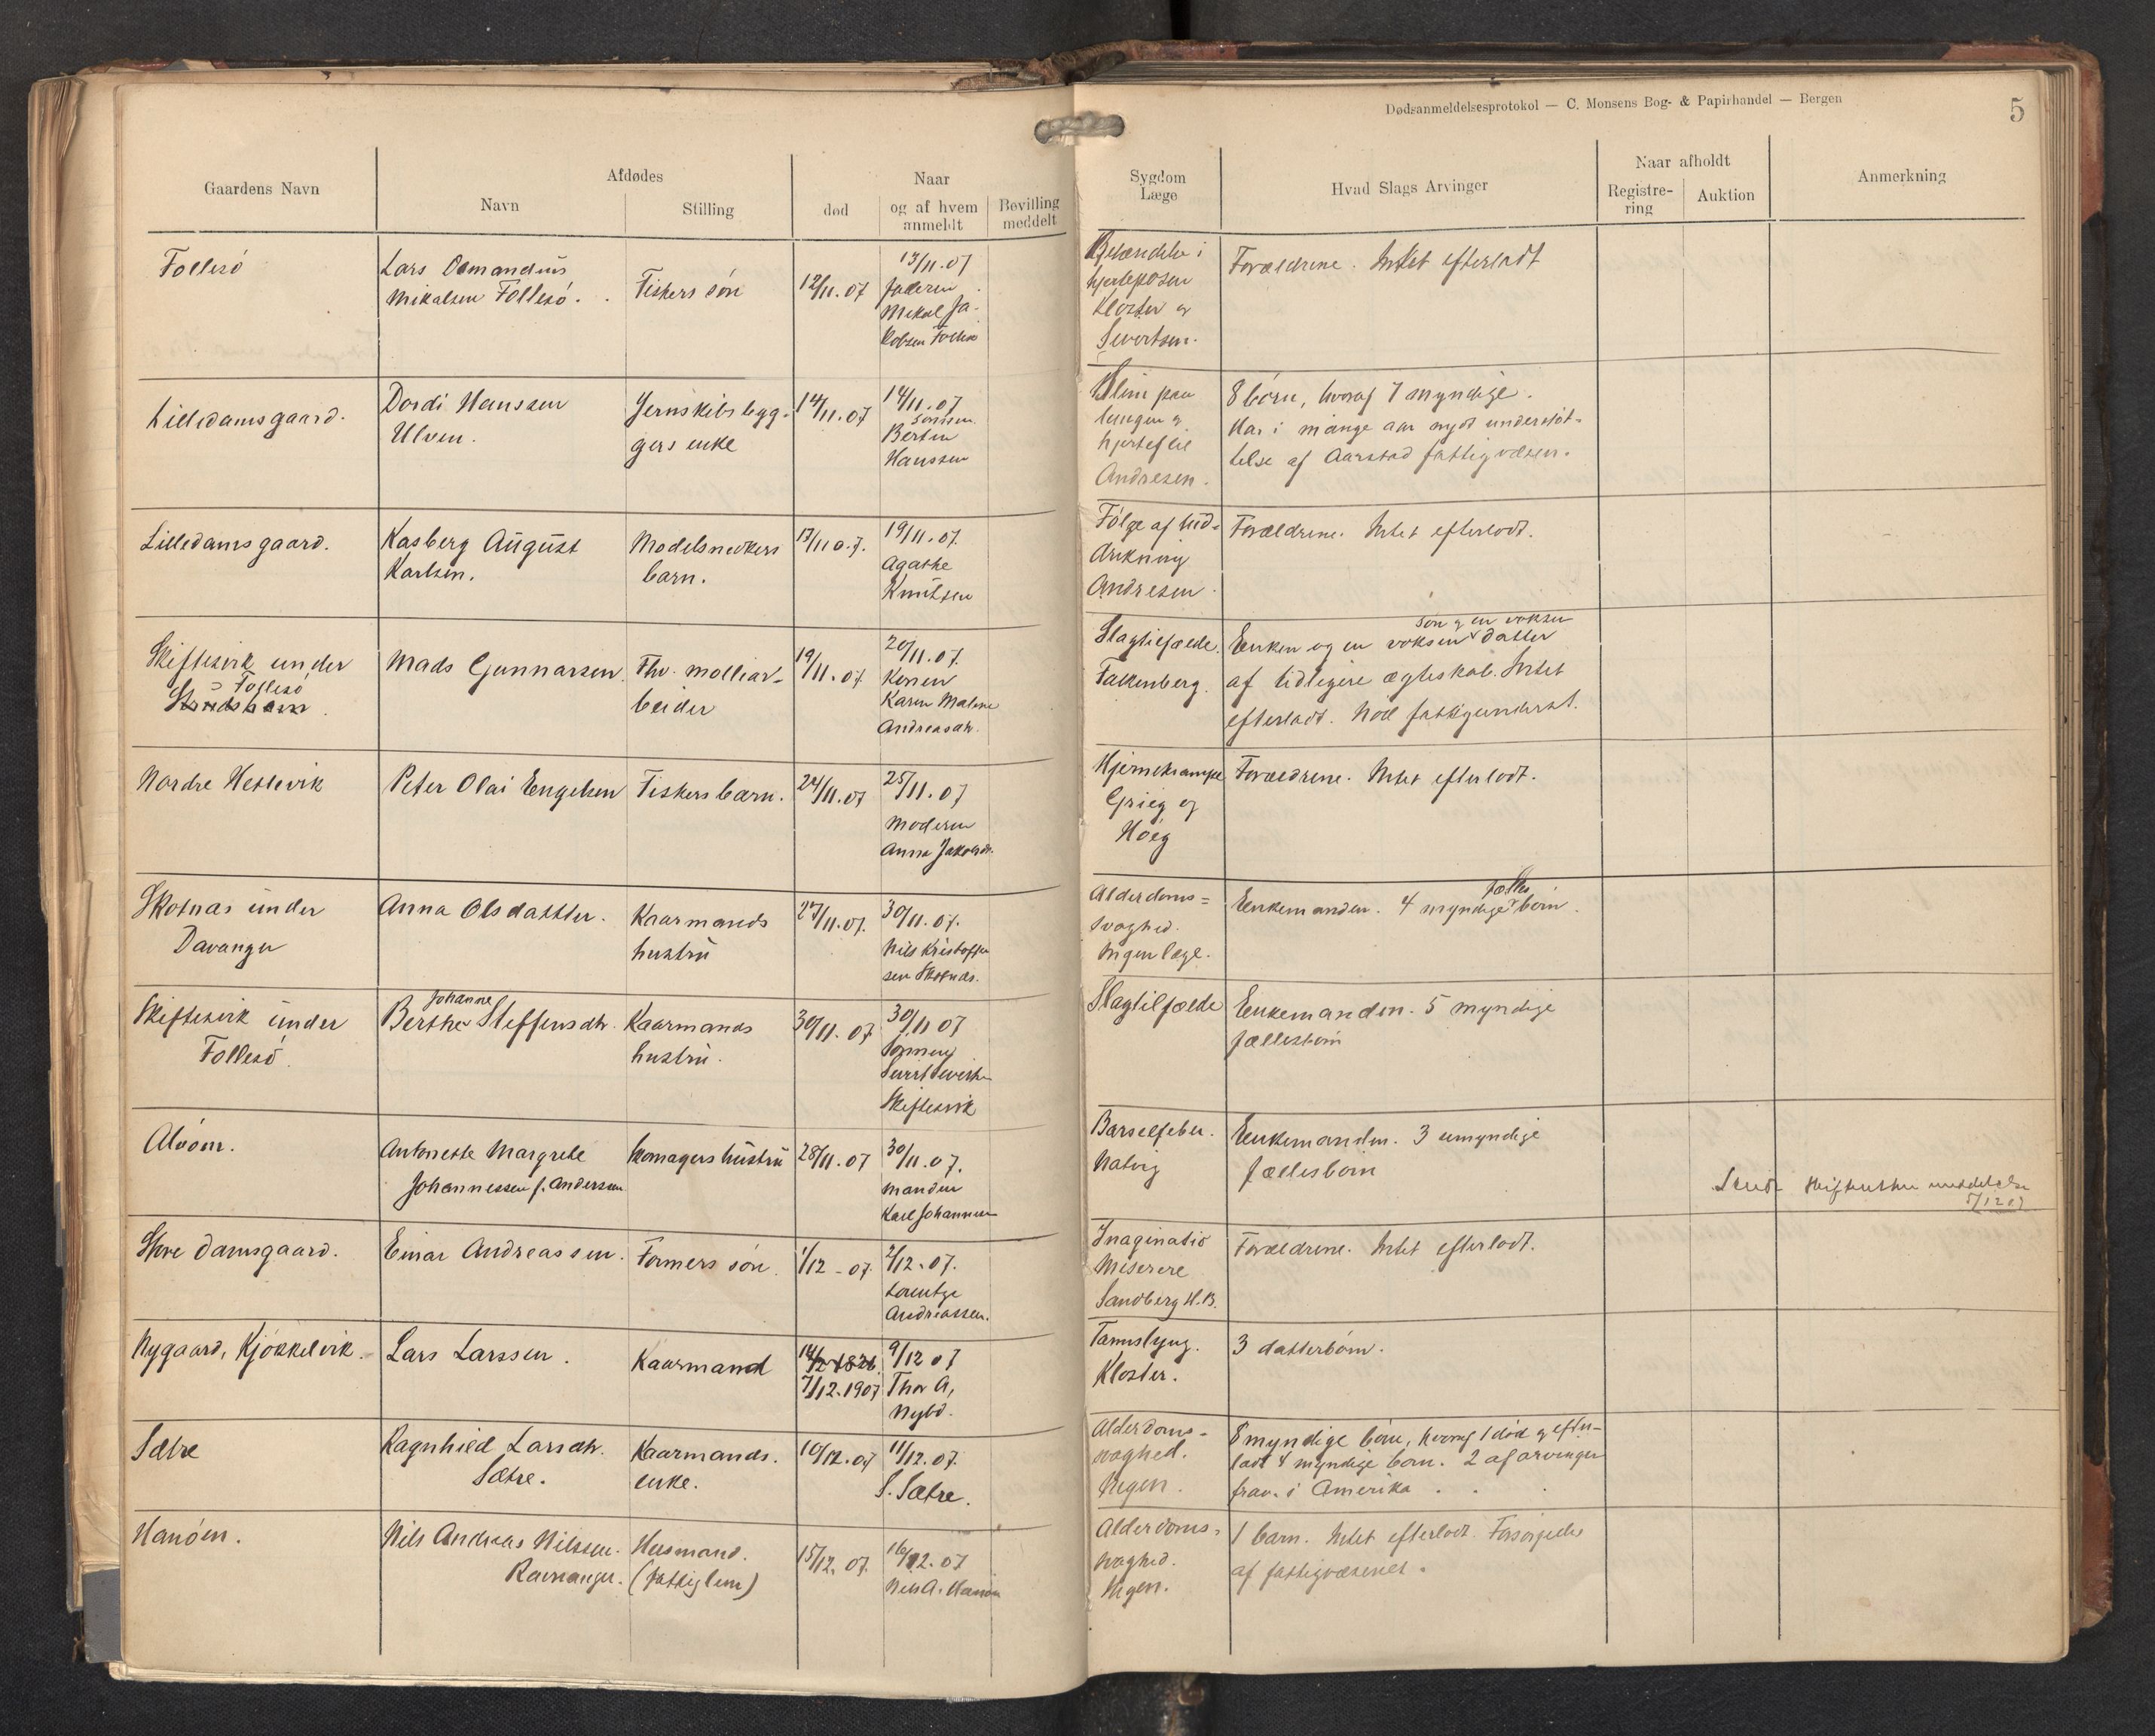 Dødsanmeldelsesprotokol — C. Monsens Bog- & Papirhandel — Bergen
5
Gaardens Navn
Afdødes
Navn
Stilling
Naar
død
og af hvem anmeldt
Bevilling meddelt
Sygdom Læge
Hvad Slags Arvinger
Naar afholdt
Registre-ring
Auktion
Anmerkning
Follesö
Lars
Mikalsen Follesö.
Fiskers sön
12/11.07
13/11.07
faderen
Mikal Ja-
kobsen Follesö
Betændelse i
hjerteposen
Kloster og
Sivertsen.
Forældrene. Intet efterladt
Lilledamsgaard.
Dordi Hanssen
Ulven.
Jernskibsbyg-
gers enke
14/11.07
14/11.07
sönnen
Bertin
Hanssen
Slim paa
lungen og
hjertefeil
Andresen.
8 börn, hvoraf 7 myndige.
Har i mange aar nydt understöt-
telse af Aarstad fattigvæsen.
Lilledamsgaard.
Kasberg August
Karlsen.
Modelsnedkers
barn.
17/11 07.
19/11.07.
Agathe
Knutsen
Fölge af
Andresen.
Forældrene. Intet efterladt.
Skiftesvik under
Follesö
Mads Gunnarsen
Fhv. möllear-
beider
19/11.07
20/11.07.
Konen
Karen Malene
Andreasdtr.
Slagtilfælde.
Falkenberg.
Enken og en voksen datter
sön og en voksen
af tidligere ægteskab. Intet
efterladt. Nöd fattigunderst.
Nordre Hetlevik
Peter Olai Engelsen
Fiskers barn.
24/11.07
25/11.07
Moderen
Anna Jakobsdr.
Hjernekrampe
Grieg og
Höeg
Forældrene. Intet efterladt.
Skotnæs under
Davanger
Anna Olsdatter.
Kaarmands
hustru
27/11.07.
30/11.07.
Nils Kristoffer
sen Skotnæs.
Alderdoms=
svaghed.
Ingen læge.
Enkemanden. 4 myndige börn.
fælles
Skiftesvik under
Follesö.
Johanne
Berthe Steffensdtr.
Kaarmands
hustru.
30/11.07
30/11 07
Sönnen
Sivert Sivertsen
Skiftesvik
Slagtilfælde
Enkemanden. 5 myndige
fællesbörn
Alvöen.
Antonette Margrete
Johannessen f. Andersen
Skomagers hustru
28/11.07
30/11.07.
Manden
Karl Johannesen
Barselfeber.
Natvig
Enkemanden. 3 umyndige
fællesbörn
Send
meddelelse
5/12 07
Store Damsgaard.
Einar Andreassen.
Formers sön.
1/12-07.
2/12.07.
Lorentze
Andreassen.
Inaginatio
Miserere
Sandberg H.B.
Forældrene. Intet efterladt.
Nygaard, Kjökkelvik.
Lars Larssen.
Kaarmand
7/12.1907
9/12 07
Thor A,
Nybö.
Kloster.
3 datterbörn.
Sætre
Ragnhild Larsdtr.
Sætre.
Kaarmands.
enke.
10/12.07
11/12.07.
S. Sætre.
Alderdoms-
svaghed.
Ingen.
8 myndige börn, hvoraf 1 död og efter-
ladt 4 myndige börn. 2 af arvinger
frav. i Amerika.
Hanöen.
Nils Andreas Nilssen.
Ramnanger.
Husmand.
(fattiglem)
15/12.07.
16/12.07
Nils A. Hanöen
Alderdoms-
svaghed.
Ingen.
1 barn. Intet efterladt. Forsörgedes
af fattigvæsenet.